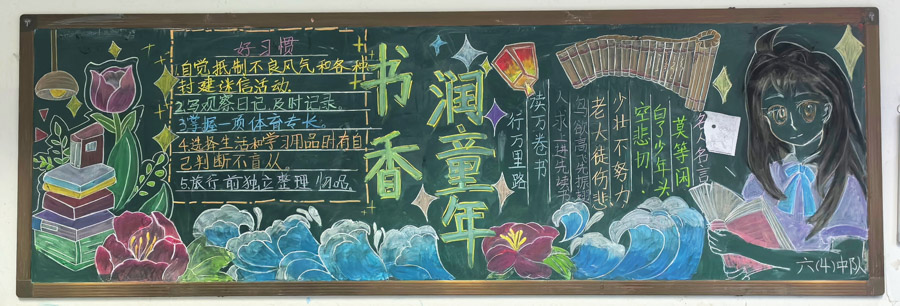 好习惯
1.自觉抵制不良风气和各种
封建迷信活动.
2.写观察日记,及时记录。
3.掌握一项体育专长。
4.选择生活和学习用品时有自
己判断不盲从.
5.旅行前独立整理物品.
书香
润童年
名人名言
莫等闲
白了少年头
空悲切
少壮不努力
老大徒伤悲
鸟欲高飞先振翅
人求上进先读书
读万卷书
行万里路
六(4)中队